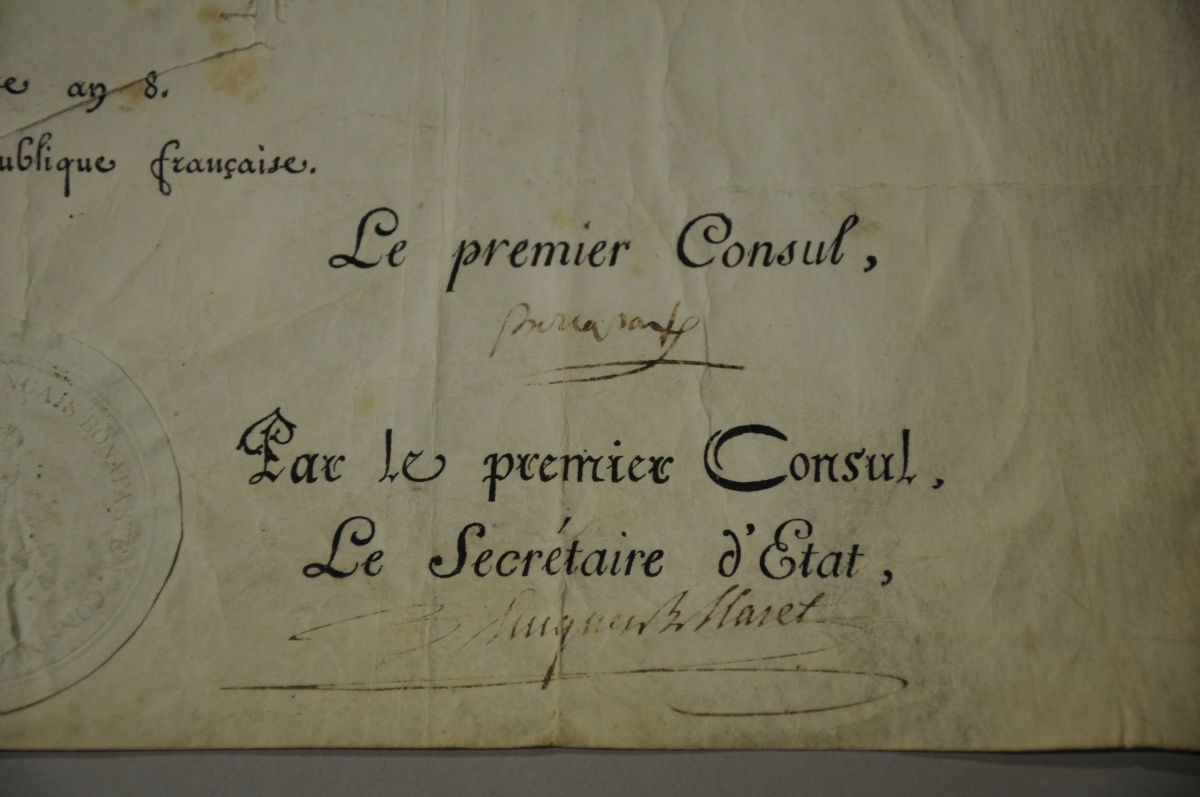 an 8.
française.
Le premier Consul,
Bonaparte
Par le premier Consul,
Le Secrétaire d'Etat,
Hugues B Maret
NÇAIS. BONAPARTE